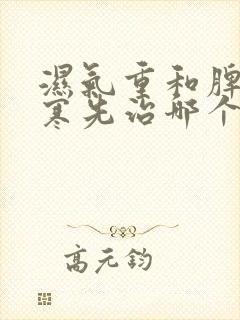 濕氣重和脾
寒先治那个
高元鈞